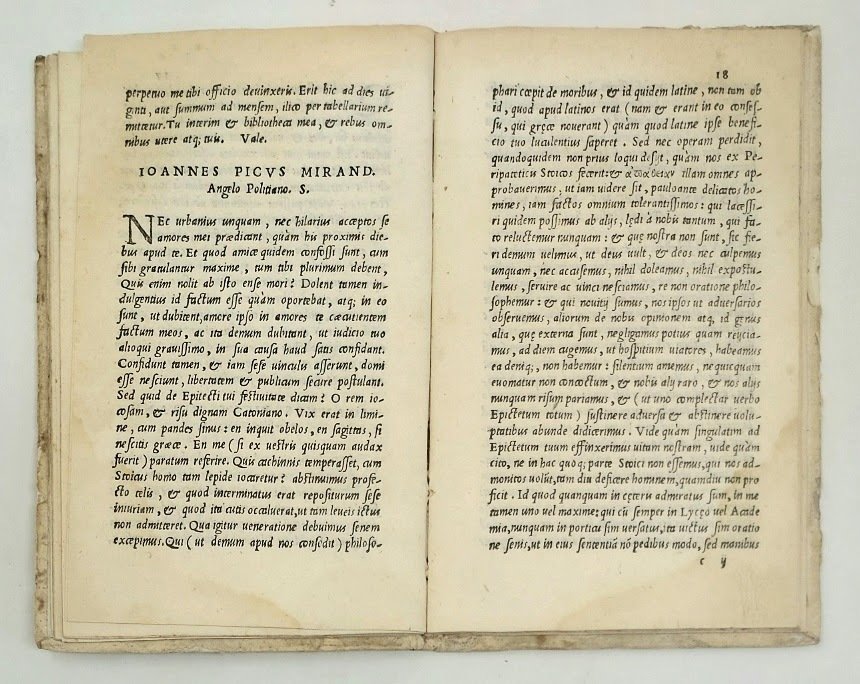 perpetuo me tibi officio deuinxeris. Erit hic ad dies ui-
ginti, aut summum ad mensem, ilico per tabellarium re-
mittetur. Tu interim & bibliotheca mea, & rebus om-
nibus utere atq; tuis. Vale.
IOANNES PICVS MIRAND.
Angelo Politiano. S.
NEc urbanius unquam, nec hilarius acceptos se
amores mei prædicant, quàm his proximis die-
bus apud te. Et quod amice quidem confossi sunt, cum
sibi gratulantur maxime, tum tibi plurimum debent,
Quis enim nolit ab isto ense mori? Dolent tamen in-
dulgentius id factum esse quàm oportebat, atq; in eo
sunt, ut dubitent, amore ipso in amores te cæcutientem
factum meos, ac ita demum dubitant, ut iudicio tuo
alioqui grauissimo, in sua causa haud satis confidant.
Confidunt tamen, & iam sese uinculis asserunt, domi
esse nesciunt, libertatem & publicum secure postulant.
Sed quid de Epicteti tui festiuitate dicam? O rem io-
cosam, & risu dignam Catoniano. Vix erat in limi-
ne, cum pandes sinus: en inquit obelos, en sagittas, si
nescitis græce. En me (si ex uestris quisquam audax
fuerit) paratum referire. Quis cachinnis temperasset, cum
Stoicus homo tam lepide iocaretur? abstinuimus profe-
cto telis, & quod interminatus erat repositurum sese
iniuriam, & quod ita cutis occaluerat, ut tam leueis ictus
non admitteret. Qua igitur ueneratione debuimus senem
excepimus. Qui (ut demum apud nos consedit) philoso-
18
phari cœpit de moribus, & id quidem latine, non tam ob
id, quod apud latinos erat (nam & erant in eo conses-
su, qui gręce nouerant) quàm quod latine ipse benefi-
cio tuo luculentius saperet. Sed nec operam perdidit,
quandoquidem non prius loqui desijt, quàm nos ex Pe-
ripateticis Stoicos fecerit: & illam omnes ap-
probauerimus, ut iam uidere sit, pauloante delicatos ho-
mines, iam factos omnium tolerantissimos: qui lacessi-
ri quidem possimus ab alijs, lędi à nobis tantum, qui fa-
to reluctemur nunquam: & quę nostra non sunt, sic fie-
ri demum uelimus, ut deus uult, & deos nec culpemus
unquam, nec accusemus, nihil doleamus, nihil expostu-
lemus, seruire ac uinci nesciamus, re non oratione philo-
sophemur: & qui nouitij sumus, nos ipsos ut aduersarios
obseruemus, aliorum de nobis opinionem atq; id genus
alia, quę externa sunt, negligamus potius quam reijcia-
mus, ad diem augemus, ut hospitium uiatores, habeamus
ea deniq;, non habemur: silentium amemus, nequicquam
euomatur non concoctum, & nobis alij raro, & nos alijs
nunquam risum pariamus, & (ut uno complectar uerbo
Epictetum totum) sustinere aduersa & abstinere uolu-
ptatibus abunde didicerimus. Vide quàm singulatim ad
Epictetum tuum effinxerimus uitam nostram, uide quàm
cito, ne in hac quoq; parte Stoici non essemus, qui nos ad-
monitos uoluit, tam diu deficere hominem, quamdiu non pro
ficit. Id quod quanquam in cęteris admiratus sum, in me
tamen uno uel maxime: qui cū semper in Lycęo uel Acade
mia, nunquam in porticu sim uersatus, ita uictus sim oratio
ne senis, ut in eius sententiā nō pedibus modo, sed manibus
c ij